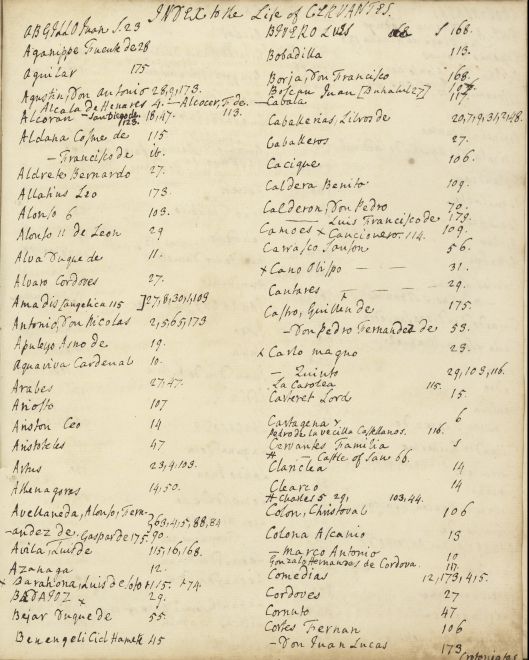 INDEX to the Life of CERVANTES.
ABGILLO Juan S. 23
Aganippe Fuente de 28
Aguilar 175
Agustin, Don Antonio 28,9,173.
Alcala de Henares 4. — Alcocer, F. de.
Alcoran — San Diego de 18,47. 113.
Aldana Cosme de 115
— Francisco de ib.
Aldrete Bernardo 27.
Allatius Leo 173.
Alonso 6 103.
Alonso 11 de Leon 29
Alva Duque de 11.
Alvaro Cordoves 27.
Amadis [angelica 115 ] 27,8,30,1,103
Antonio, Don Nicolas 2,5,65,173
Apuleyo Asno de 19.
Aquaviva Cardenal 10.
Arabes 27,47.
Ariosto 107
Ariston Ceo 14
Aristoteles 47
Artus 23,4,103.
Athenagores 14,50.
Avellaneda, Alonso, Fern-
-andez de. 63,4,15,88,84
Gaspar de 175. 90.
Avila, Luis de 115,16,168.
Azanaga 12.
x Barahona, Luis de Soto +115. +74.
BADAJOZ x 29.
Bejar Duque de 55.
Benengeli Cid Hamete 45
BIVERO Luis S 168.
Bobadilla 113.
Borja, Don Francisco 168.
Boscan Juan
Cabala 117.
Cavallerias, Libros de 20,7,9,31,2,48.
Cavalleros 27.
Cacique 106.
Caldera Benito 109.
Calderon, Don Pedro 70.
— Luis Francisco de 179.
Camoes x Cancionero. 114. 109.
Carrasco Sanson 56.
x Cano Obispo — — 31.
Cantares — — 29.
Castro, Guillen de 175.
— Don Pedro Fernandez de 53.
x Carlo magno 23.
— Quinto 29,103,116.
La Carolea 115.
Carteret Lord 15.
Cartagena x 6
Pedro de la Vecilla Castellanos. 116.
Cervantes, Familia 5
# — Castle of San 66.
Clariclea 14
Clearco 14
# Charles 5 29, 103,44.
Colon, Christoval 106
Colona Ascanio 13
— Marco Antonio 10
Gonzalo Hernandes de Cordova. 117.
Comedias 12,173,415.
Cordoves 27
Cornuto 47
Cortes Fernan 106
— Don Juan Lucas 173
Crotoniatas